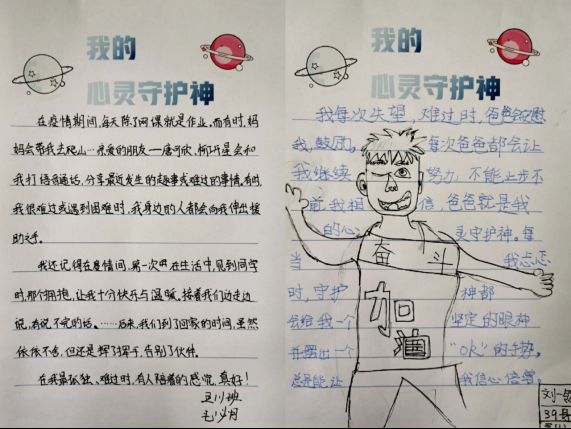 我的
心灵守护神
在疫情期间,每天除了网课就是作业,而有时,妈
妈会带我去爬山…亲爱的朋友—唐可欣、柳开星会和
我打语音通话,分享最近发生的趣事或难过的事情,有时,
我很难过或遇到困难时,我身边的人都会向我伸出援
助之手。
我还记得在疫情间,第一次
在生活中,见到同学
时,那个拥抱,让我十分快乐与温暖。接着我们边走边
说,有说不完的话。……后来,我们到了回家的时间,虽然
依依不舍,但还是挥了挥手,告别了伙伴。
在我最孤独、难过时,有人陪着的感觉,真好!
我的
心灵守护神
我每次失望,难过时,爸爸安慰
我,鼓励。每次爸爸都会让
我继续努力,不能止步不
前,我相信,爸爸就是我
的心灵守护神。每
当我忐忑
时,守护神都
会给我一个坚定的眼神
并摆出一个“OK”的手势,
总是能让我信心倍增。
奋斗
加油
刘一
39号